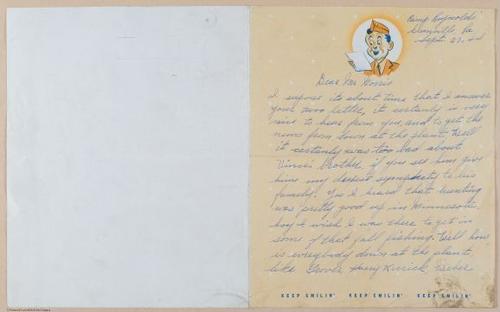 Camp Reynolds
Greenville, Pa
Sept 27, 44
Dear Mr Norris
I supose its about time that I answer
your two letter, it certainly is very
nice to hear from you, and to get the
news from down at the plant. Well
it certainly was too bad about
Vince's brother, if you see him give
him my deepest sympathy to his
family. Yes I heard that hunting
was pretty good up in Minnesota.
boy I wish I was there to get in
some of that fall fishing. Well how
is everybody down at the plant,
like Grove, Harry
KEEP SMILIN' KEEP SMILIN' KEEP SMILIN'